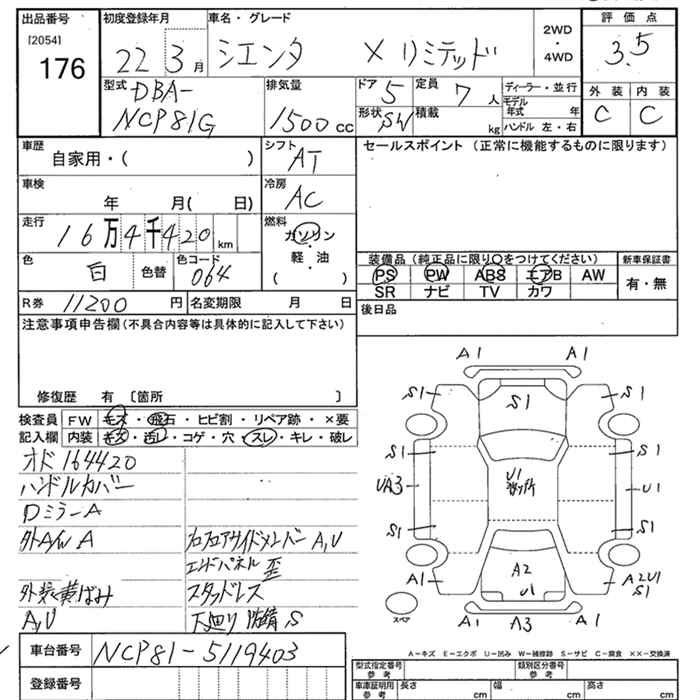 出品番号
[2054]
176
初度登録年月
22 3月
車名・グレード
シエンタ X リミテッド
2WD
・
4WD
評価点
3.5
外装 内装
C C
型式
DBA-
NCP81G
排気量
1500cc
ドア 5
形状 SW
定員 7人
積載 kg
ディーラー・並行
モデル年式 年
ハンドル 左・右
車歴
自家用・( )
シフト
AT
車検
年 月( 日)
冷房
AC
走行
16万4千420km
燃料
ガソリン
軽・油
( )
色
白
色替
色コード
064
R券 11200円
名変期限 月 日
セールスポイント (正常に機能するものに限ります)
装備品 (純正品に限り○をつけてください)
PS PW ABS エアB AW
SR ナビ TV カワ
新車保証書
有・無
後日品
注意事項申告欄 (不具合内容等は具体的に記入して下さい)
修復歴 有 [箇所 ]
検査員
記入欄
FW キズ・飛石・ヒビ割・リペア跡・×要
内装 キズ・汚レ・コゲ・穴・スレ・キレ・破レ
オド164420
ハンドルカバー
Dミラー A
外A/W A
外装黄ばみ
A,U
フロアサイドメンバー A,U
エンドパネル 歪
スタッドレス
下廻り 防錆 S
A1 A1
S1 S1 S1
S1 S1
UA3 U1 U1
S1 S1
A1 A2 U1 A2U1
S1
A1 A3 A1
スペア
A-キズ E-エクボ U-凹み W-補修跡 S-サビ C-腐食 ××-交換済
車台番号 NCP81-5119403
登録番号
型式指定番号
参考
類別区分番号
参考
車庫証明用
参考
長さ cm 幅 cm 高さ cm